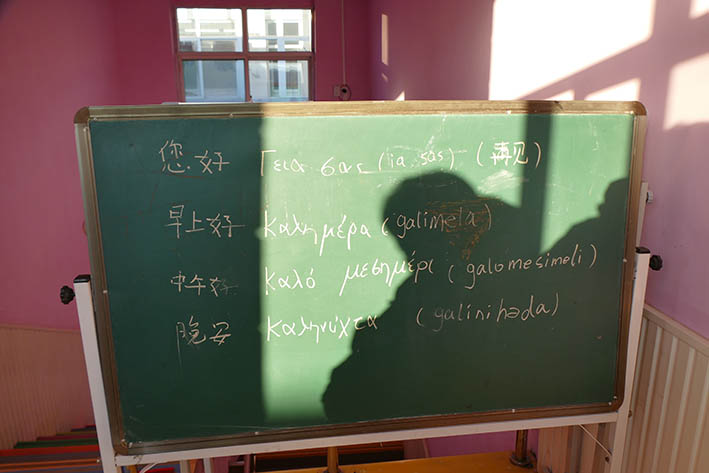 您好 Γεια σας (iia sas) (再见)
早上好 Καλημέρα (galimela)
中午好 Καλό μεσημέρι (galomesimeli)
晚安 Καληνύχτα (galinihəda)